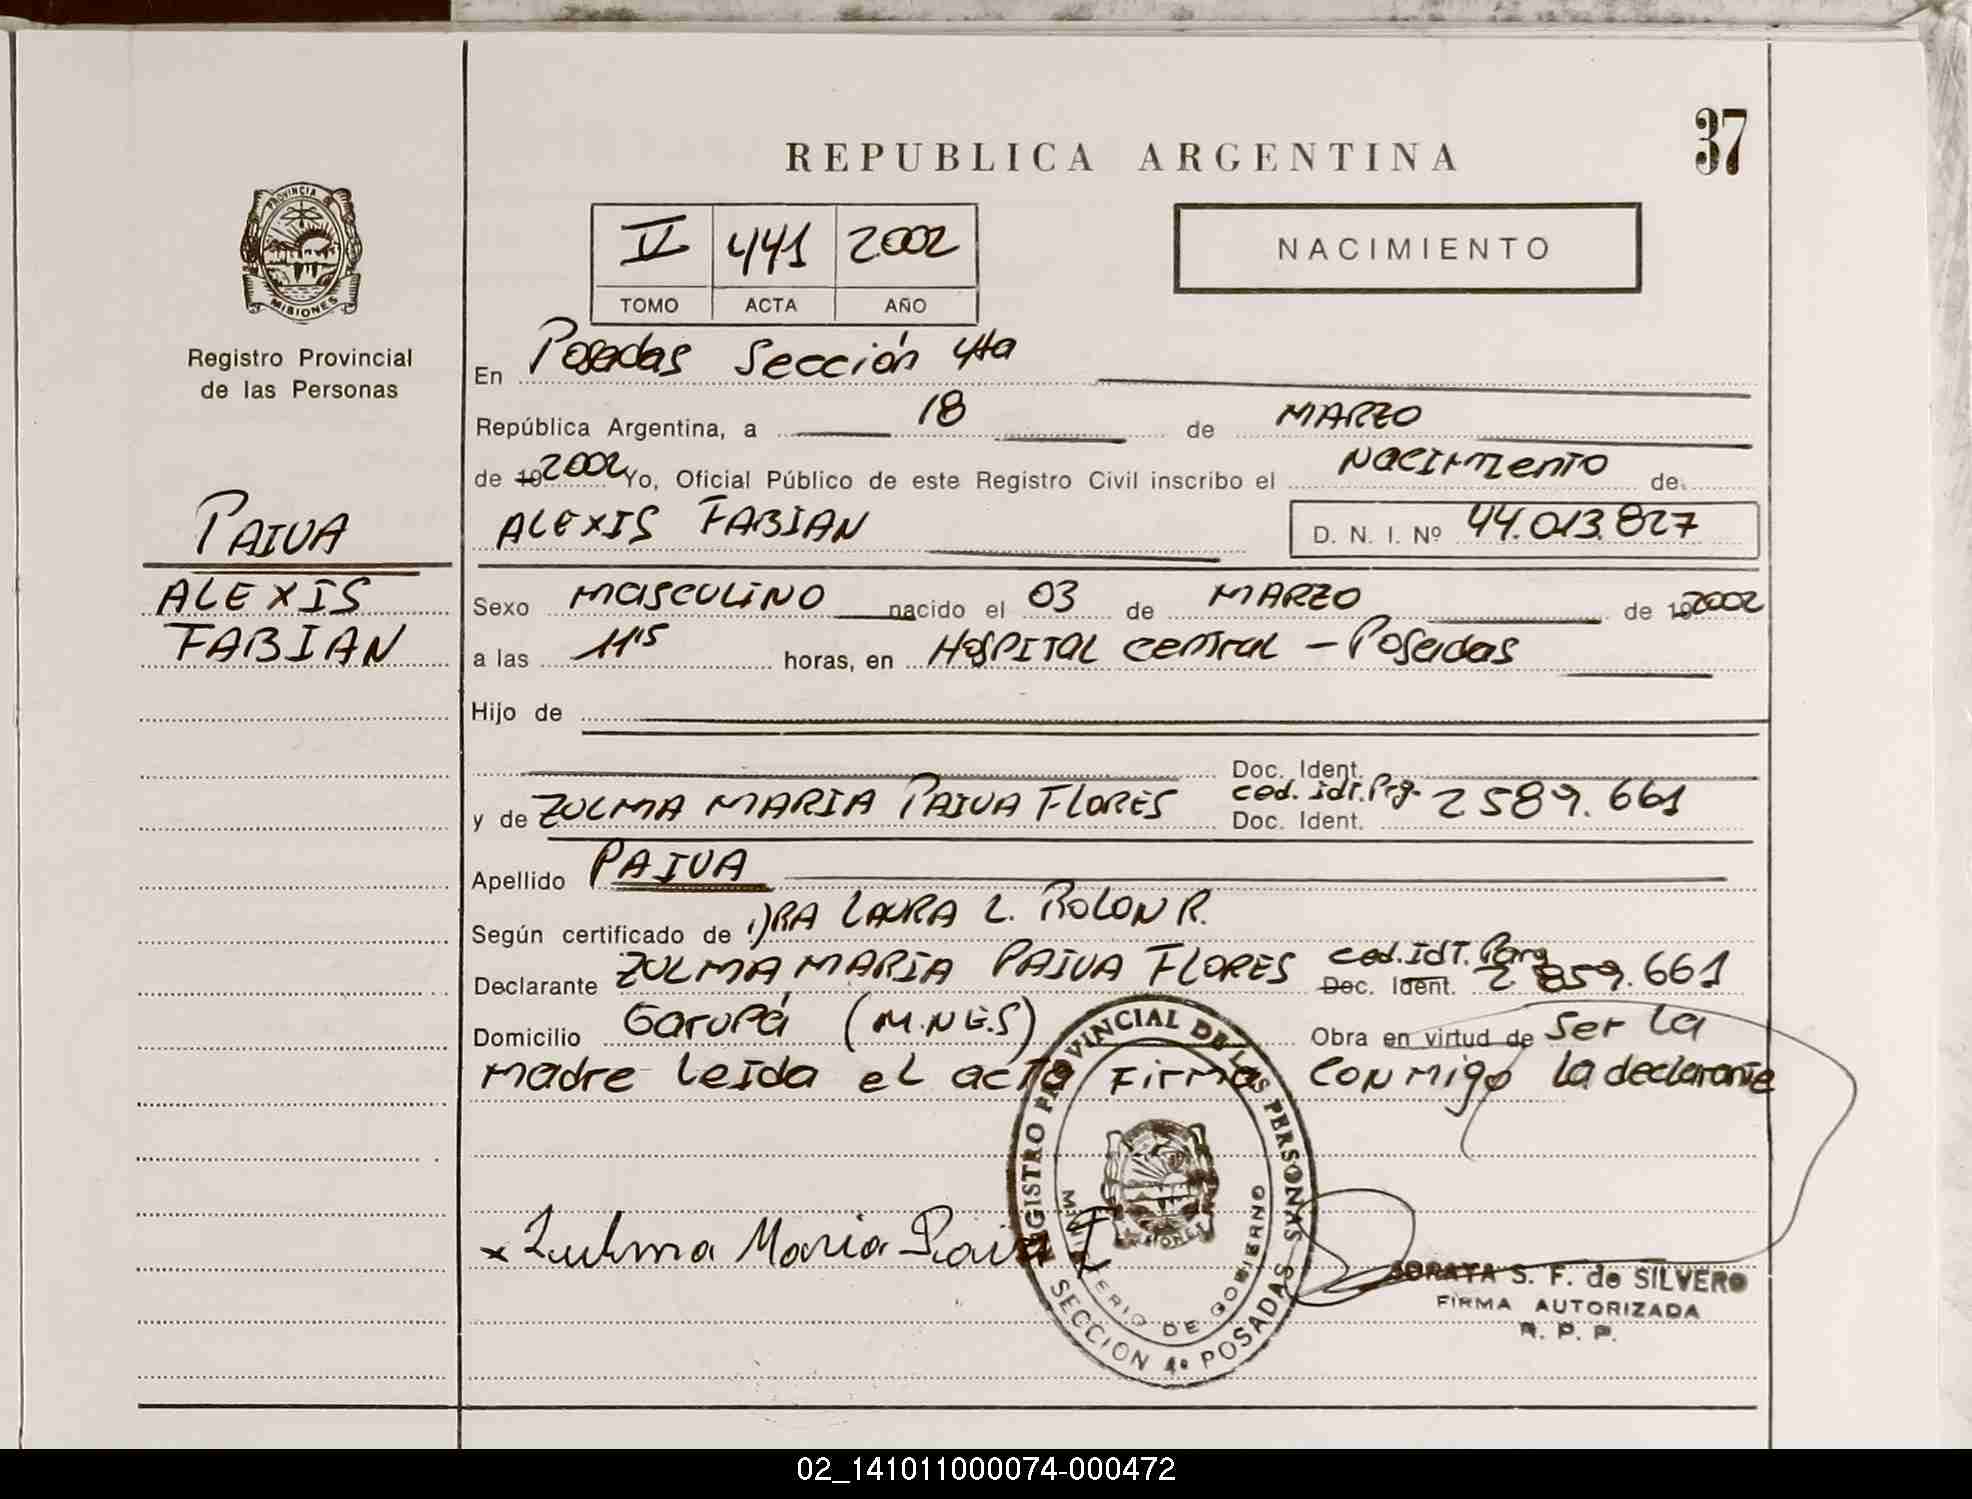 37
REPUBLICA ARGENTINA
PROVINCIA DE
MISIONES
Registro Provincial
de las Personas
441 2002
TOMO ACTA AÑO
NACIMIENTO
En Posadas Sección 4ta
República Argentina, a 18 de MARZO
de 19 2002 Yo, Oficial Público de este Registro Civil inscribo el NACIMIENTO de
PAIVA
ALEXIS FABIAN
D. N. I. Nº 44.013.827
ALEXIS
FABIAN
Sexo MASCULINO nacido el 03 de MARZO de 19 2002
a las 11 15 horas, en HOSPITAL CENTRAL - Posadas
Hijo de
Doc. Ident.
y de ZULMA MARIA PAIVA FLORES ced. idt. Prg. 2589.661
Doc. Ident.
Apellido PAIVA
Según certificado de DRA LAURA L. ROLON R.
Declarante ZULMA MARIA PAIVA FLORES ced. IdT. Parg Doc. Ident. 2 859.661
Domicilio Garupá (M.NES) Obra en virtud de ser la
madre leida el acta firma conmigo la declarante
REGISTRO PROVINCIAL DE LAS PERSONAS
MINISTERIO DE GOBIERNO
SECCION 4º POSADAS
x Zulma Maria Paiva F
SORAYA S. F. de SILVERO
FIRMA AUTORIZADA
R. P. P.
02_141011000074-000472